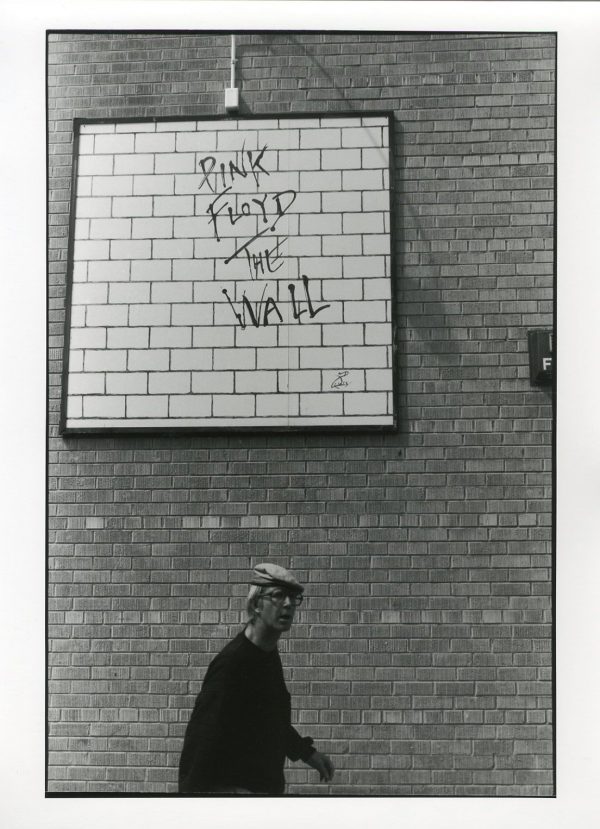 PINK
FLOYD
THE
WALL
F